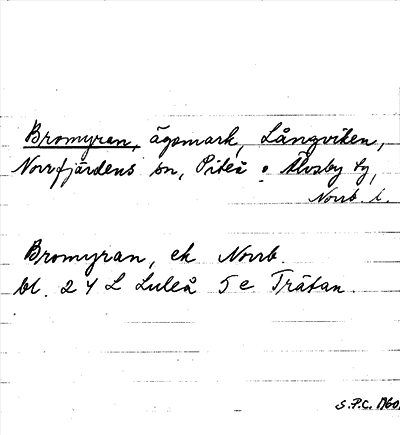 Bromyran, ägomark, Långviken,
Norrfjärdens sn, Piteå o Älvsby tg,
Norrb l.
Bromyran, ek Norrb.
bl. 24 L Luleå 5 e Träfan.
S.P.C. 1960